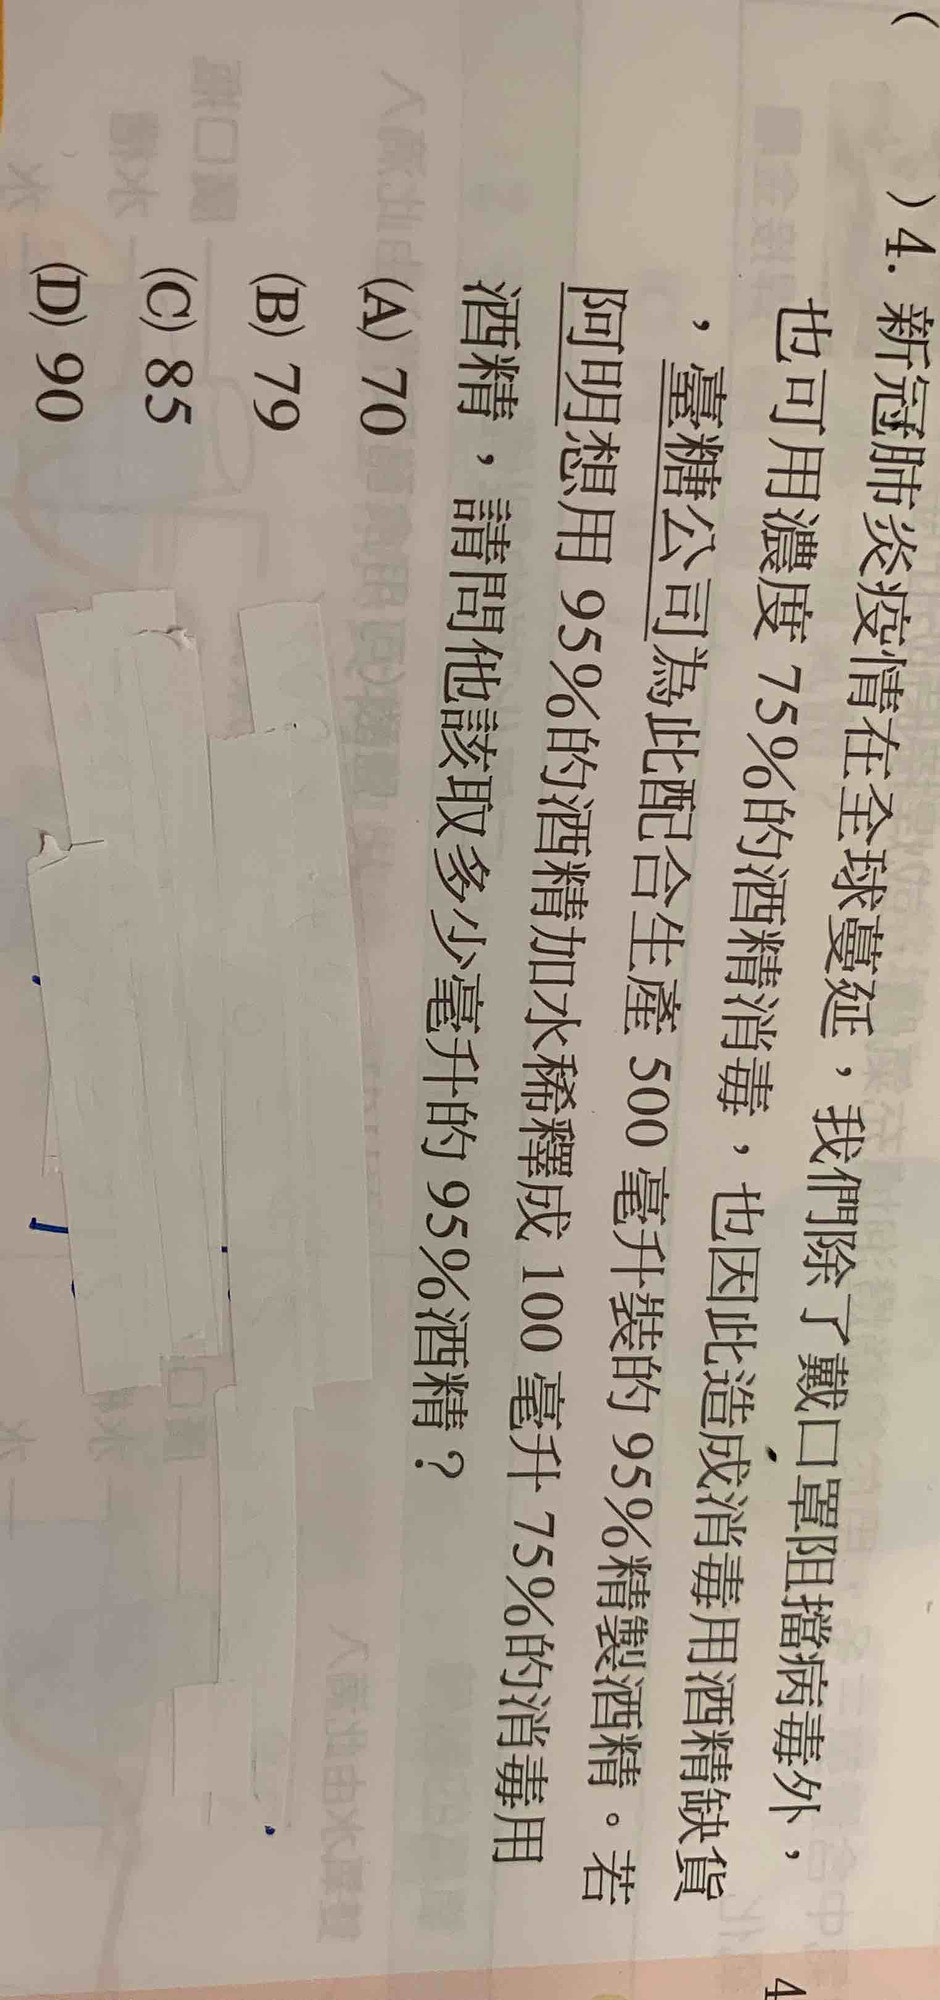 ( )4. 新冠肺炎疫情在全球蔓延，我們除了戴口罩阻擋病毒外，
也可用濃度 75%的酒精消毒，也因此造成消毒用酒精缺貨
，臺糖公司為此配合生產 500 毫升裝的 95%精製酒精。若
阿明想用 95%的酒精加水稀釋成 100 毫升 75%的消毒用
酒精，請問他該取多少毫升的 95%酒精？
(A) 70
(B) 79
(C) 85
(D) 90